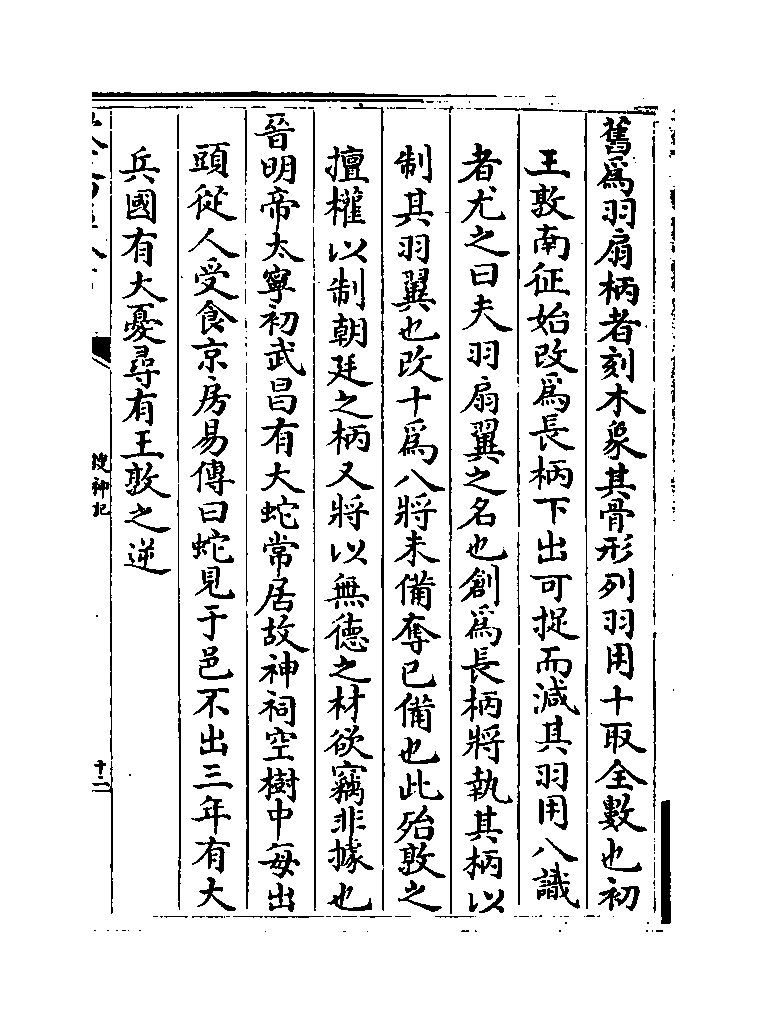 舊爲羽扇柄者刻木象其骨形列羽用十取全數也初
王敦南征始改爲長柄下出可捉而減其羽用八識
者尤之曰夫羽扇翼之名也創爲長柄將執其柄以
制其羽翼也改十爲八將未備奪已備也此殆敦之
擅權以制朝廷之柄又將以無德之材欲竊非據也
晉明帝太寧初武昌有大蛇常居故神祠空樹中每出
頭從人受食京房易傳曰蛇見于邑不出三年有大
兵國有大憂尋有王敦之逆
搜神記
十二